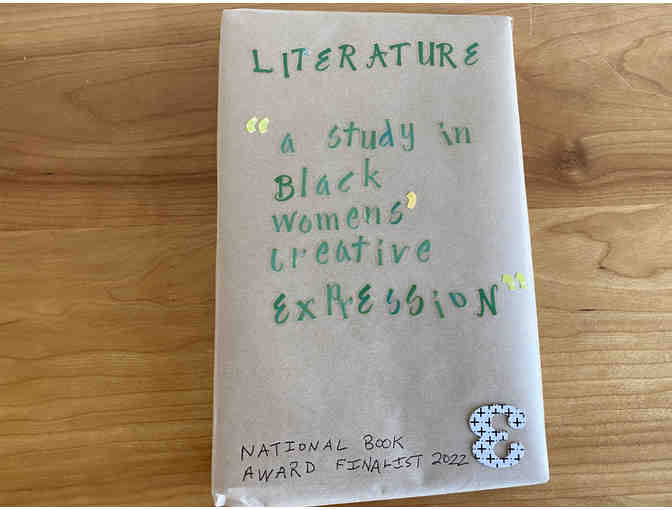 LITERATURE
"a study in
Black
womens'
creative
EXPRESSION"
NATIONAL BOOK
AWARD FINALIST 2022